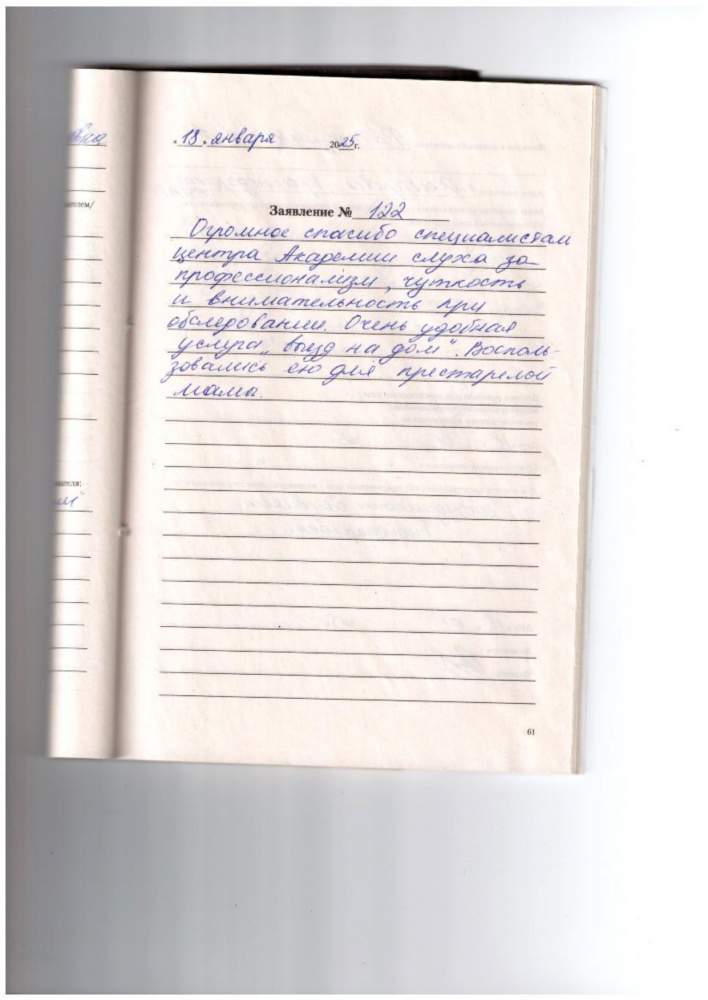 13 января 2025г.
Заявление № 122
Огромное спасибо специалистам
центра Академии слуха за
профессионализм, чуткость
и внимательность при
обследовании. Очень удобная
услуга „выезд на дом“. Восполь-
зовались ею для престарелой
мамы.
61